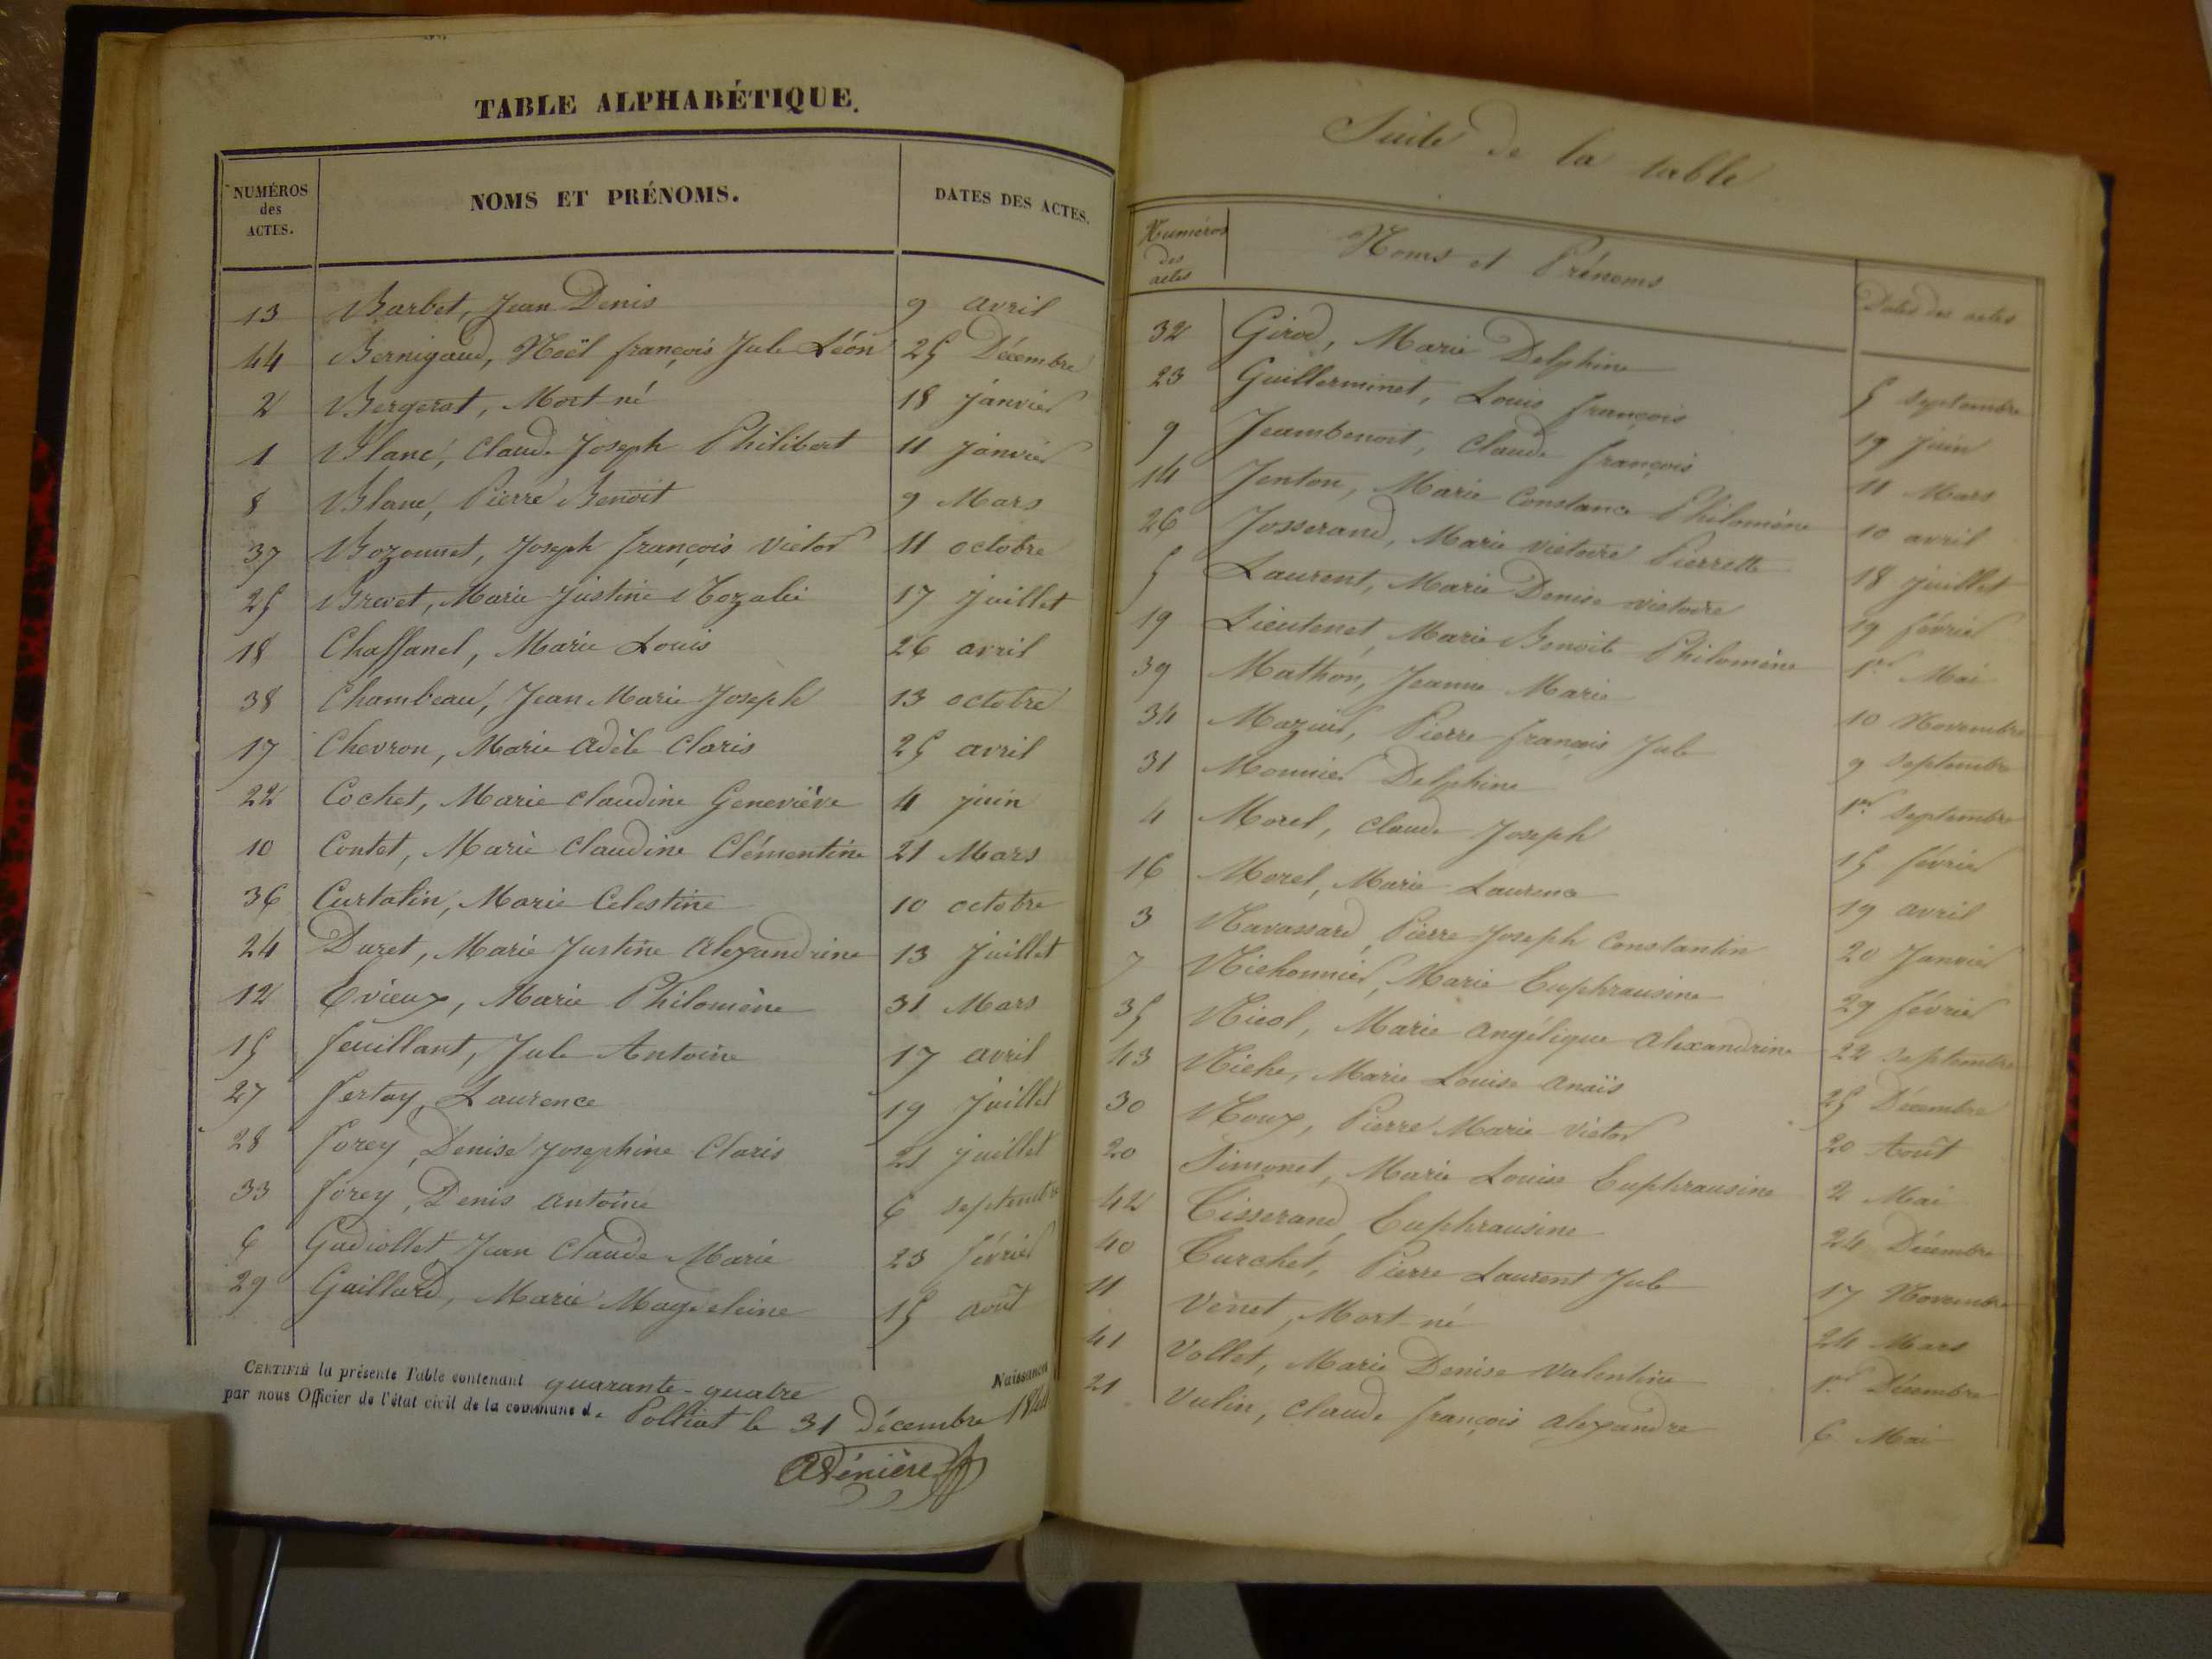 TABLE ALPHABÉTIQUE.
NUMÉROS
des
ACTES.
NOMS ET PRÉNOMS.
DATES DES ACTES.
13 Barbet, Jean Denis 9 avril
44 Bernigaud, Noël françois Jule Léon 25 Décembre
2 Bergerat, Mort né 18 janvier
1 Blanc, Claude Joseph Philibert 11 janvier
8 Blanc, Pierre Benoit 9 Mars
37 Bozonnet, Joseph françois victor 11 octobre
25 Brevet, Marie Justine Rozalie 17 juillet
18 Chaffanel, Marie Louis 26 avril
38 Chambeau, Jean Marie Joseph 13 octobre
17 Chevron, Marie adèle Claris 25 avril
22 Cochet, Marie claudine Geneviève 4 juin
10 Contet, Marie Claudine Clémentine 21 Mars
36 Curtalin, Marie Celestine 10 octobre
24 Duret, Marie Justine alexandrine 13 juillet
12 Evieux, Marie Philomène 31 Mars
15 feuillant, Jule Antoine 17 avril
27 fertay, Laurence 19 juillet
28 forey, Denise Josephine Claris 21 juillet
33 forey, Denis antoine 6 septembre
6 Gudiollet Jean Claude Marie 23 février
29 Gaillard, Marie Magdeleine 15 août
CERTIFIÉ la présente Table contenant quarante-quatre Naissances
par nous Officier de l'état civil de la commune de Polliat le 31 Décembre 1844
Suite de la table
Numéros
des
actes
Noms et Prénoms
Dates des actes
32 Girod, Marie Delphine 5 septembre
23 Guillerminet, Louis françois 19 juin
9 Jeambenoit, Claude françois 11 Mars
14 Jenton, Marie Constance Philomène 10 avril
26 Josserand, Marie victoire Pierrette 18 juillet
5 Laurent, Marie Denise victoire 19 février
19 Lieutenet, Marie Benoite Philomène 1er Mai
39 Mathon, Jeanne Marie 10 Novembre
34 Mazuir, Pierre françois Jule 9 septembre
31 Monnier Delphine 1er septembre
4 Morel, claude Joseph 15 février
16 Morel, Marie Laurence 19 avril
3 Ravassard, Pierre Joseph Constantin 20 Janvier
7 Richonnier, Marie Euphrausine 29 février
35 Ricol, Marie angélique alexandrine 22 septembre
43 Riche, Marie Louise anaïs 25 Décembre
30 Roux, Pierre Marie victor 20 Août
20 Simonet, Marie Louise Euphrausine 2 Mai
42 Tisserand, Euphrausine 24 Décembre
40 Turchet, Pierre Laurent Jule 17 Novembre
11 Vènet, Mort né 24 Mars
41 Vollet, Marie Denise valentine 1er Décembre
21 Vulin, claude françois alexandre 6 Mai